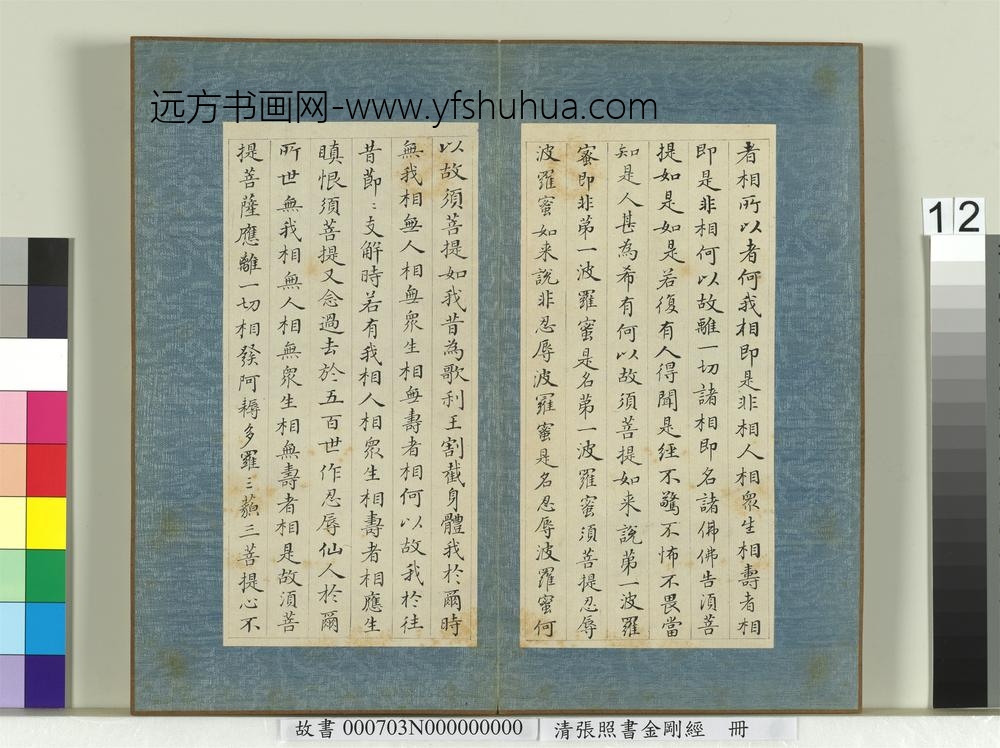 远方书画网-www.yfshuhua.com
者相所以者何我相即是非相人相衆生相壽者相
即是非相何以故離一切諸相即名諸佛佛告須菩
提如是如是若復有人得聞是經不驚不怖不畏當
知是人甚為希有何以故須菩提如来說苐一波羅
蜜即非苐一波羅蜜是名苐一波羅蜜須菩提忍辱
波羅蜜如来說非忍辱波羅蜜是名忍辱波羅蜜何
以故須菩提如我昔為歌利王割截身體我於爾時
無我相無人相無衆生相無壽者相何以故我於往
昔節〻支解時若有我相人相衆生相壽者相應生
瞋恨須菩提又念過去於五百世作忍辱仙人於爾
所世無我相無人相無衆生相無壽者相是故須菩
提菩薩應離一切相發阿耨多羅〻藐三菩提心不
12
故書 000703N000000000 清張照書金剛經 冊